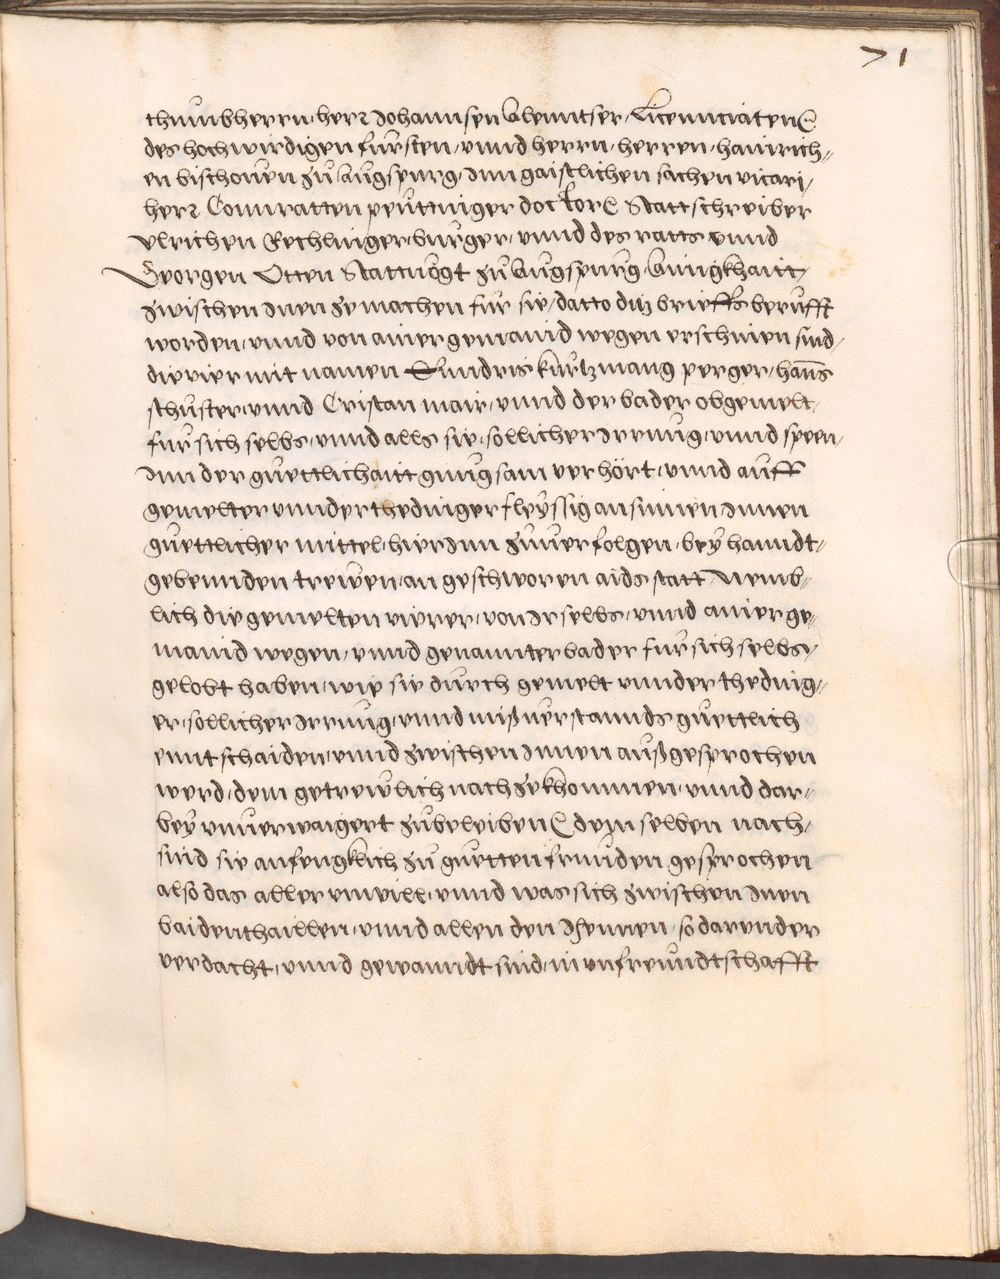 71
thumbherrn, herr Johannsen Alenntser, Licenntiaten
des hochwirdigen fürsten, vnnd herrn, herren, hainrich-
en bischouen zu Augspurg, Inn gaistlichen sachen vicari,
herr Connratten peuttinger doctore Stattschreiber
vlrichen Rechlinger, burger, vnnd des ratts vnnd
Georgen Otten Stattuogt zu Augspurg, Ainigkhaitt,
zwischen Inen zemachen für sie, datto ditz brieffs berüfft
worden, vnnd von ainer gemaind wegen erschinen sind,
die vier mit namen Enndris kürtz mang perger, hanns
schüster, vnnd Cristan mair, vnnd der bader obgemelt,
für sich selbs, vnnd alls sie, sollicher Irrung, vnnd speen,
Inn der guettlichaitt gnugsam verhört, vnnd auff
gemelter vnnderthedinger fleyssig ansinnen Innen
guettlicher mittel, hierInn zuuerfolgen, bey hanndt-
gebennden trewen, an geschworen aids statt Nemb-
lich die gemelten vierer, von Ir selbs, vnnd ainer ge-
maind wegen, vnnd genannter bader für sich selbs,
gelobt haben, wie sie durch gemelt vnnderthednig-
er, sollicher Irrung, vnnd mißuerstannds guettlich
enntschaiden, vnnd zwischen Innen außgesprochen
werd, dem getrewlich nachzekhommen, vnnd dar-
bey vnuerwaigert zubeleiben dem selben nach,
sind sie anfengklich zu guetten frunden gesprochen
also das aller vnwill, vnnd was sich zwischen Inen
baiden thaillen, vnnd allen den Ihennen, so darunder
verdacht, vnnd gewanndt sind, in vnfreunndtschafft